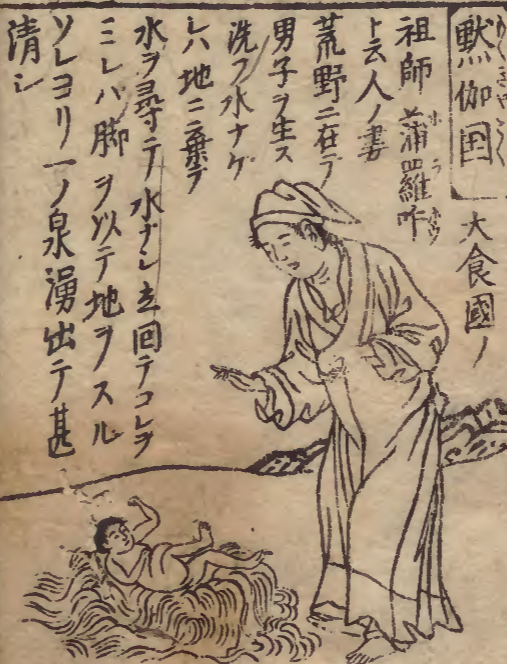 黙伽国 大食國ノ
祖師蒲羅吽
ト云人ノ妻
荒野ニ在テ
男子ヲ生ス
洗フ水ナケ
レハ地ニ棄テ
水ヲ尋テ水ナシ立回テコレヲ
ミレバ脚ヲ以テ地ヲスル
ソレヨリ一ノ泉湧出テ甚
清シ